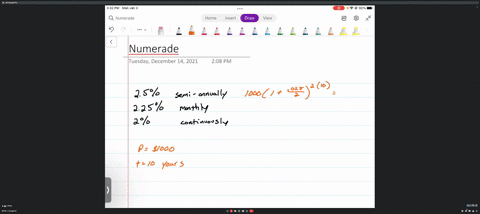 Numerade
Home Insert Draw View
Numerade
Tuesday, December 14, 2021 2:08 PM
2.5% semi-annually 1000(1 + .025/2)^2(10) =
2.25% monthly
2% continuously
P = $1000
t = 10 years